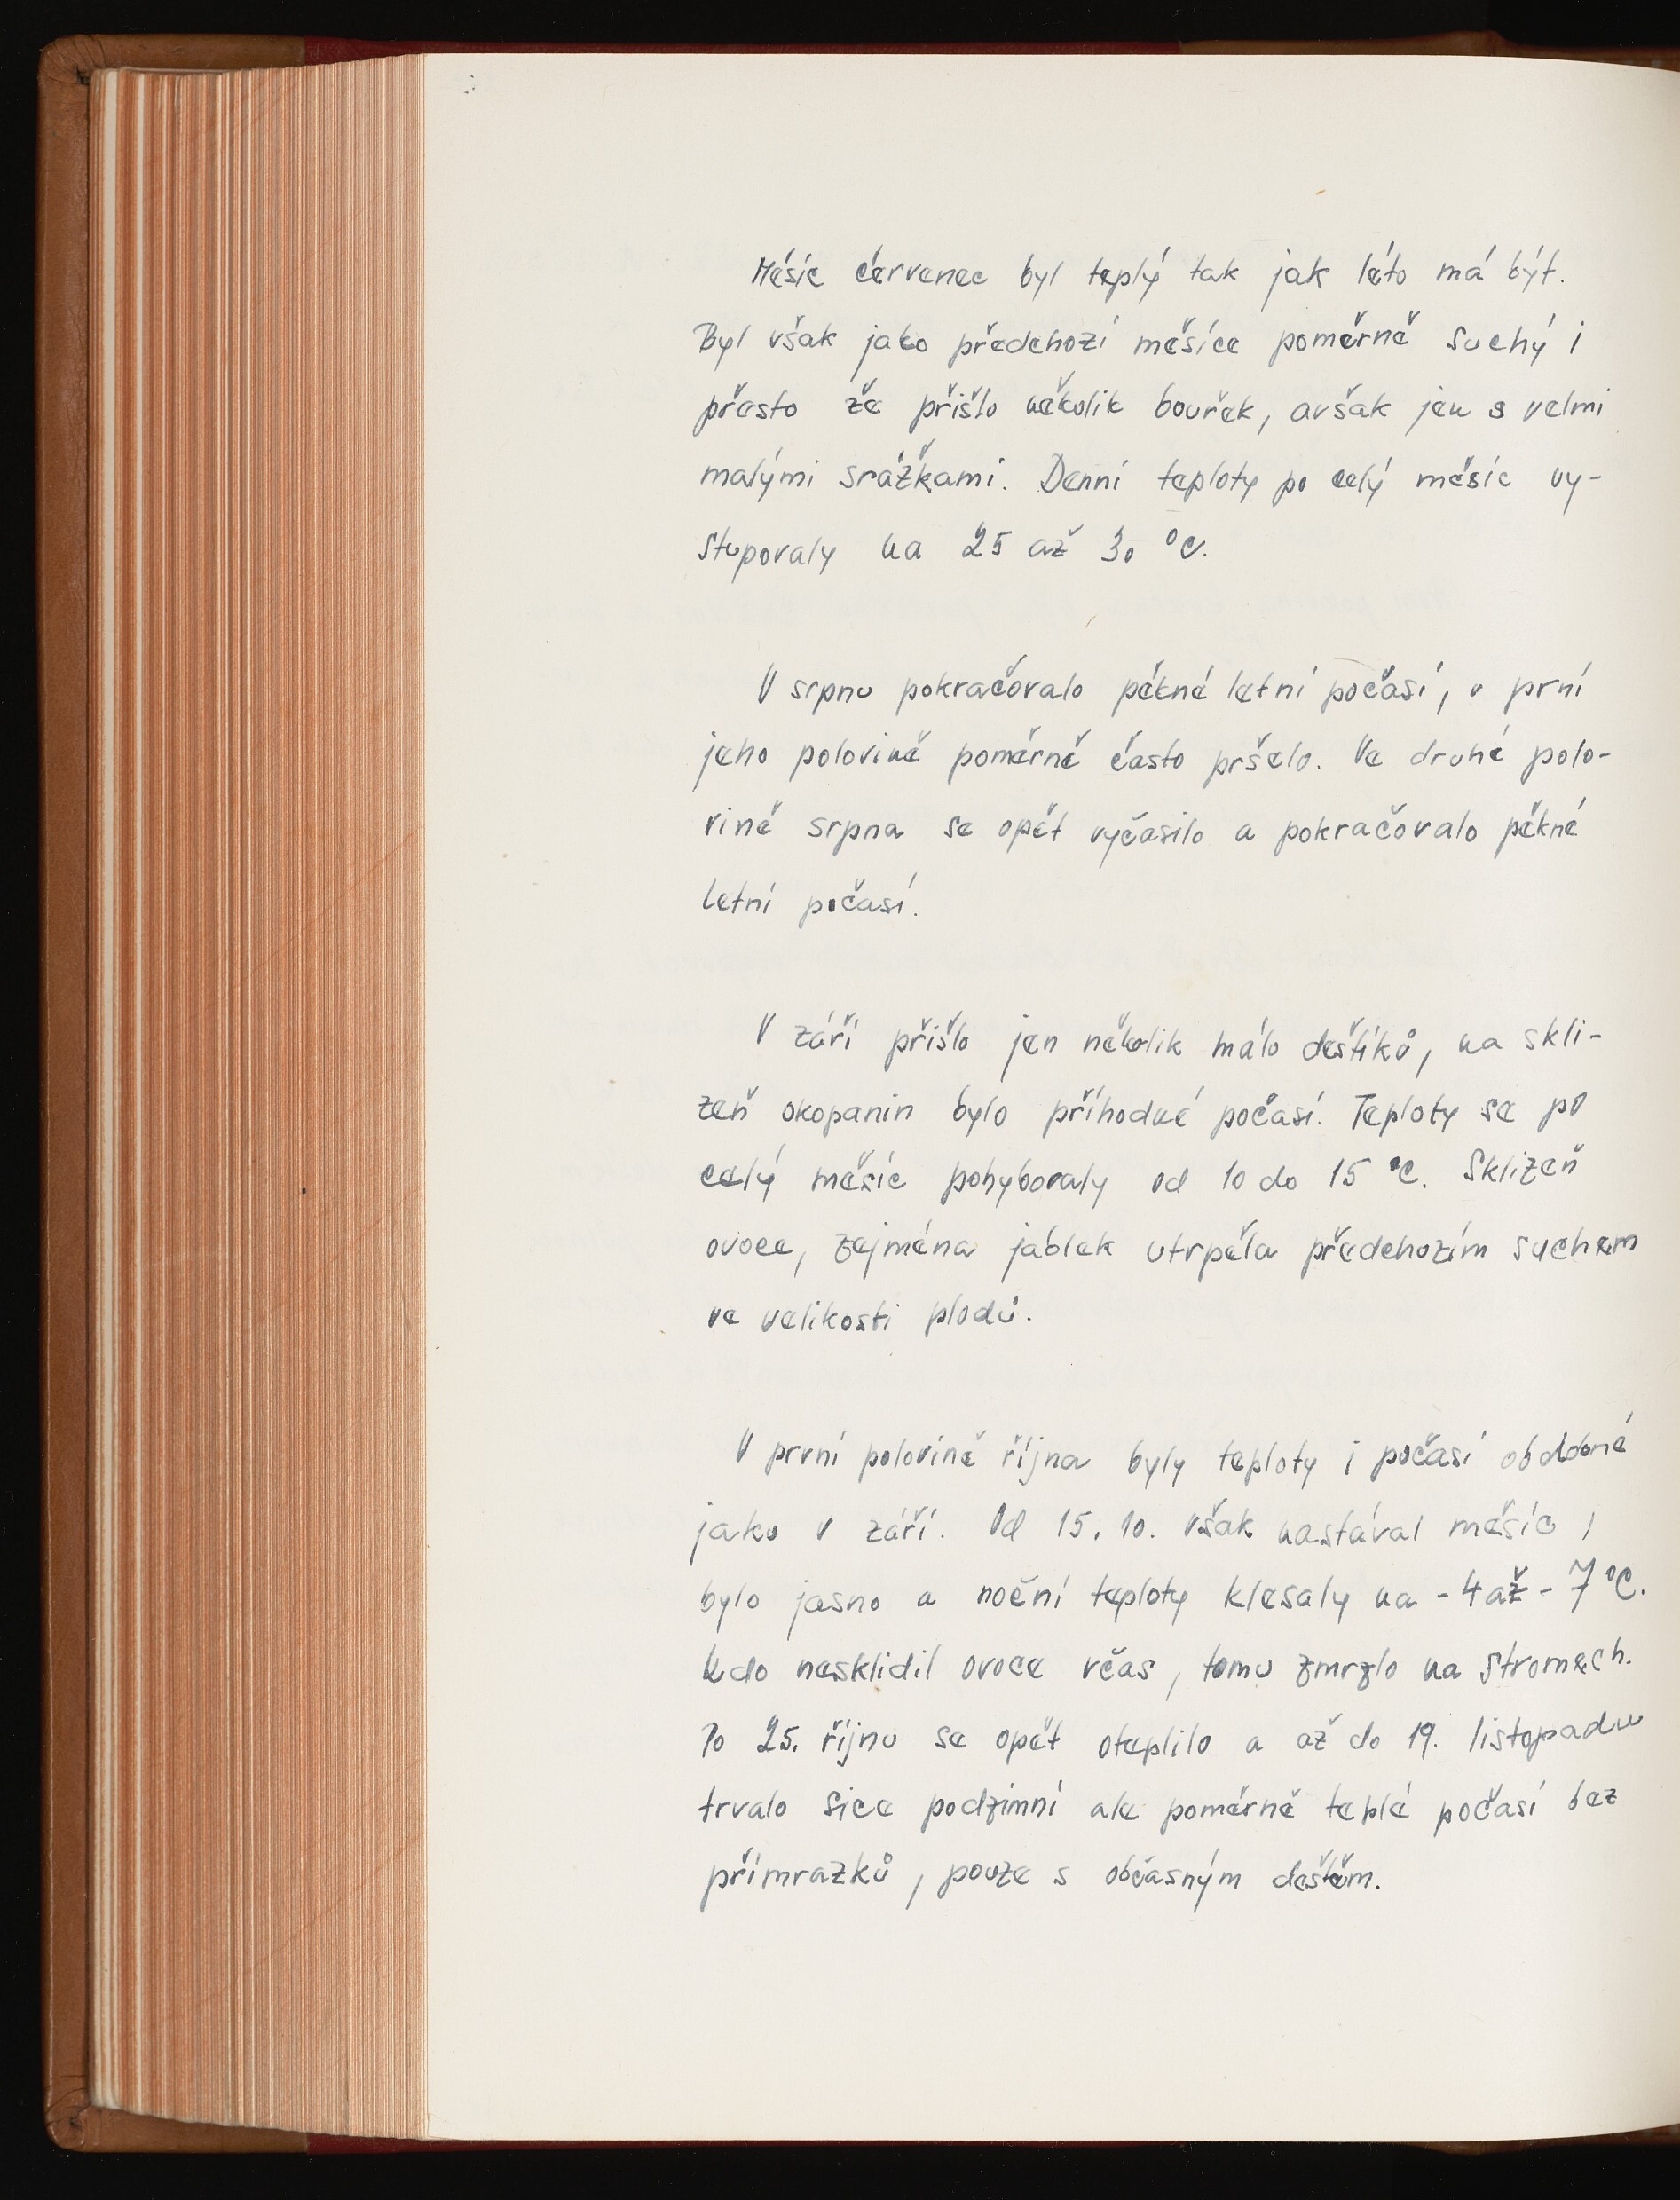 Měsíc červenec byl teplý tak jak léto má být.
Byl však jako předchozí měsíce poměrně suchý i
přesto že přišlo několik bouřek, avšak jen s velmi
malými srážkami. Denní teploty po celý měsíc vy-
stupovaly na 25 až 30 °C.
V srpnu pokračovalo pěkné letní počasí, v první
jeho polovině poměrně často pršelo. Ve druhé polo-
vině srpna se opět vyčasilo a pokračovalo pěkné
letní počasí.
V září přišlo jen několik málo deštíků, na skli-
zeň okopanin bylo příhodné počasí. Teploty se po
celý měsíc pohybovaly od 10 do 15 °C. Sklizeň
ovoce, zejména jablek utrpěla předchozím suchem
ve velikosti plodů.
V první polovině října byly teploty i počasí obdobné
jako v září. Od 15. 10. však nastával měsíc,
bylo jasno a noční teploty klesaly na -4 až -7 °C.
Kdo nesklidil ovoce včas, tomu zmrzlo na stromech.
Po 25. říjnu se opět oteplilo a až do 19. listopadu
trvalo sice podzimní ale poměrně teplé počasí bez
přímrazků, pouze s občasným deštěm.